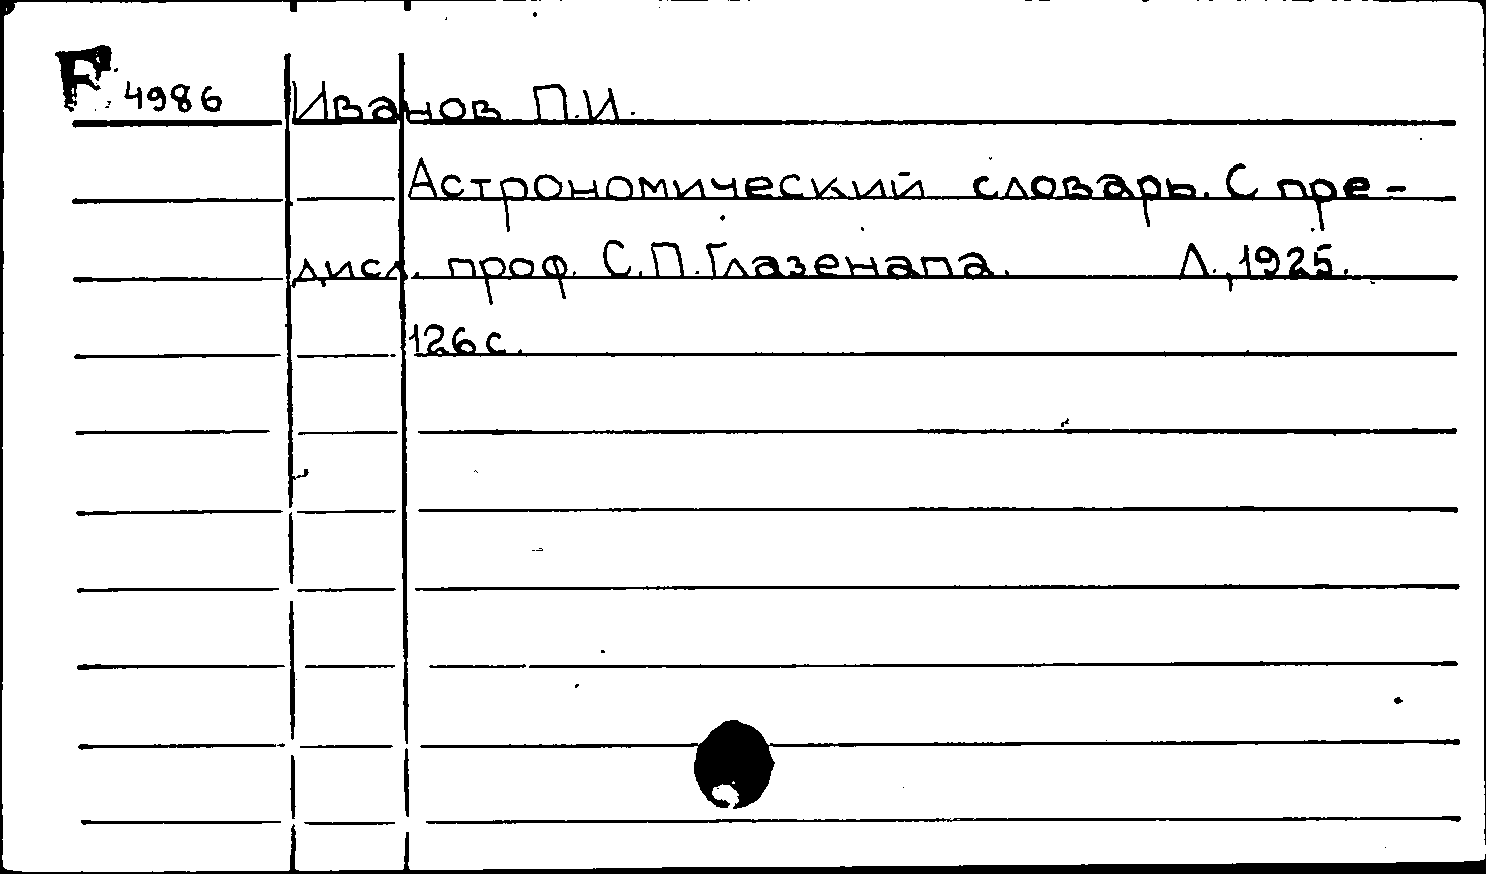 F 4986 Иванов П.И.
Астрономический словарь. С пре-
дисл. проф. С.П.Глазенапа. Л., 1925.
126 с.